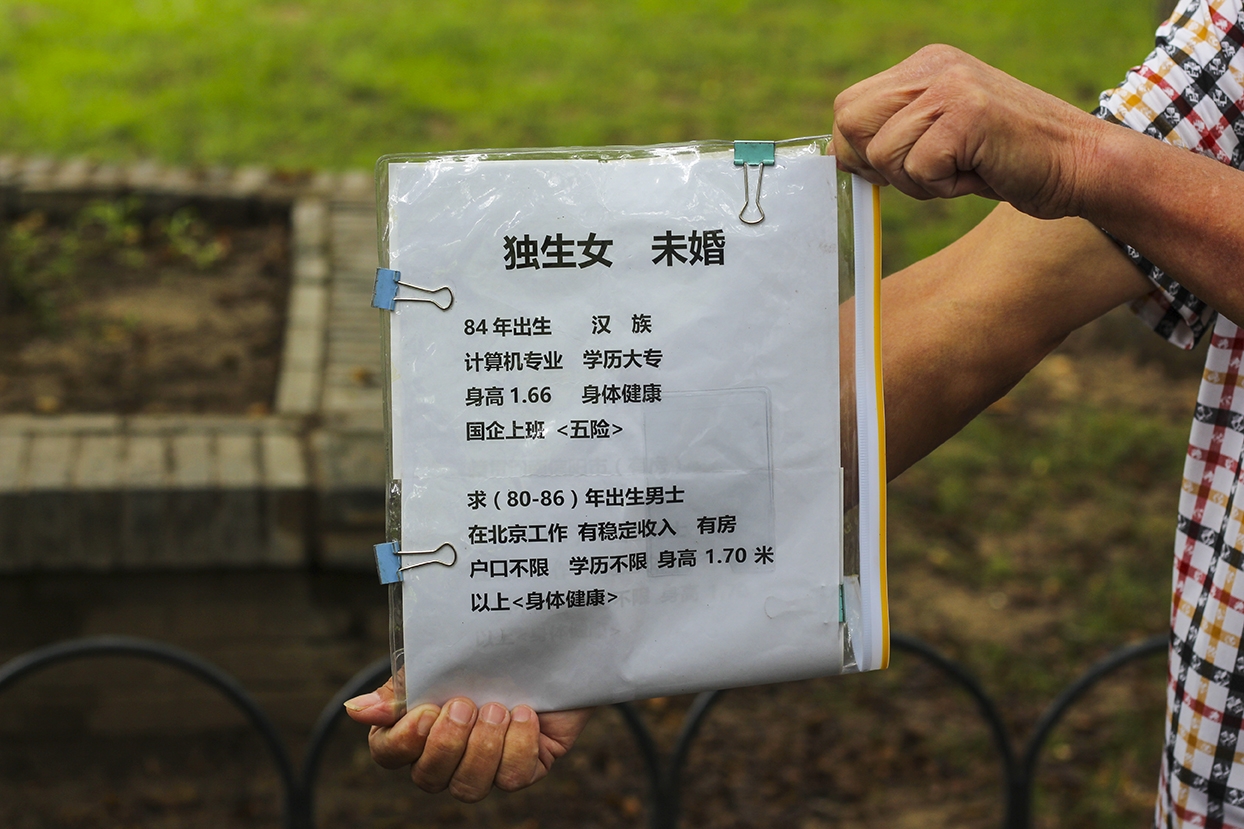 独生女 未婚
84年出生 汉 族
计算机专业 学历大专
身高1.66 身体健康
国企上班 <五险>
求(80-86)年出生男士
在北京工作 有稳定收入 有房
户口不限 学历不限 身高 1.70 米
以上<身体健康>